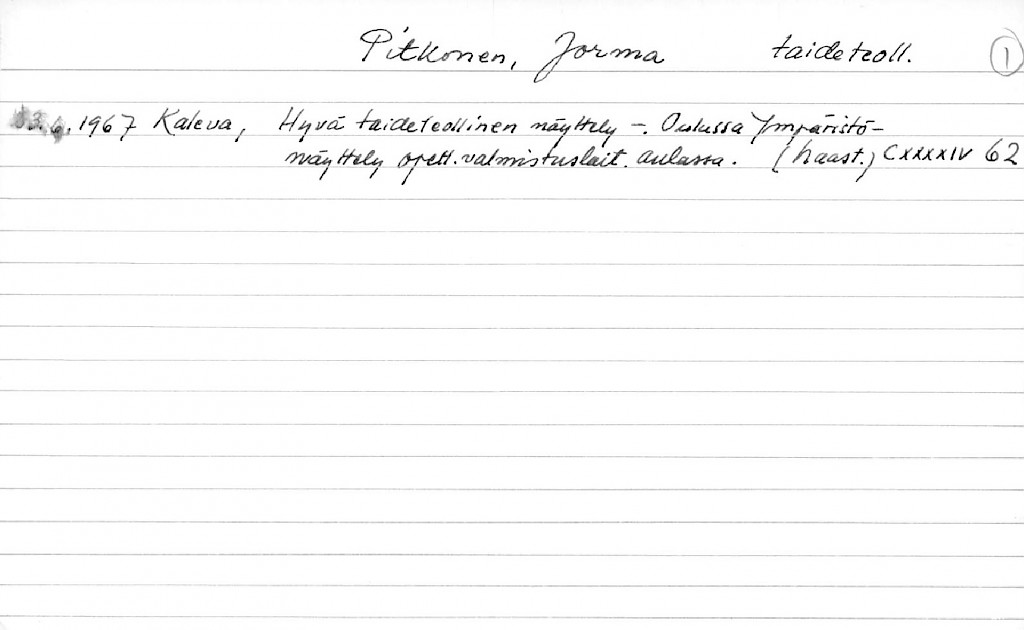 Pitkonen, Jorma taideteoll. 1
3.6.1967 Kaleva, Hyvä taideteollinen näyttely -. Oulussa Ympäristö-
näyttely opett.valmistuslait. aulassa. (haast.) CXXXXIV 62